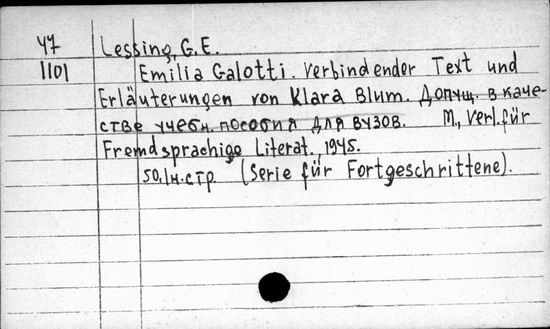 47 Lessing, G.E.
1101 Emilia Galotti. Verbindender Text und
Erläuterungen von Klara Blum. Допущ. в каче-
стве учебн. пособия для вузов. М., Verl. für
Fremdsprachige Literat., 1945.
50, 1н. стр (Serie für Fortgeschrittene).